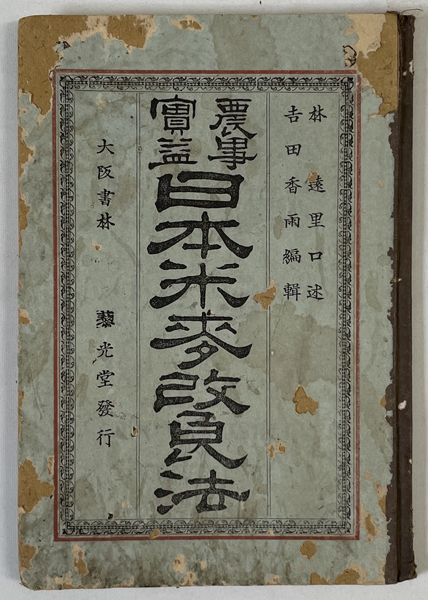 林遠里口述
吉田香雨編輯
農事
實益
日本米麥改良法
大阪書林 藜光堂發行